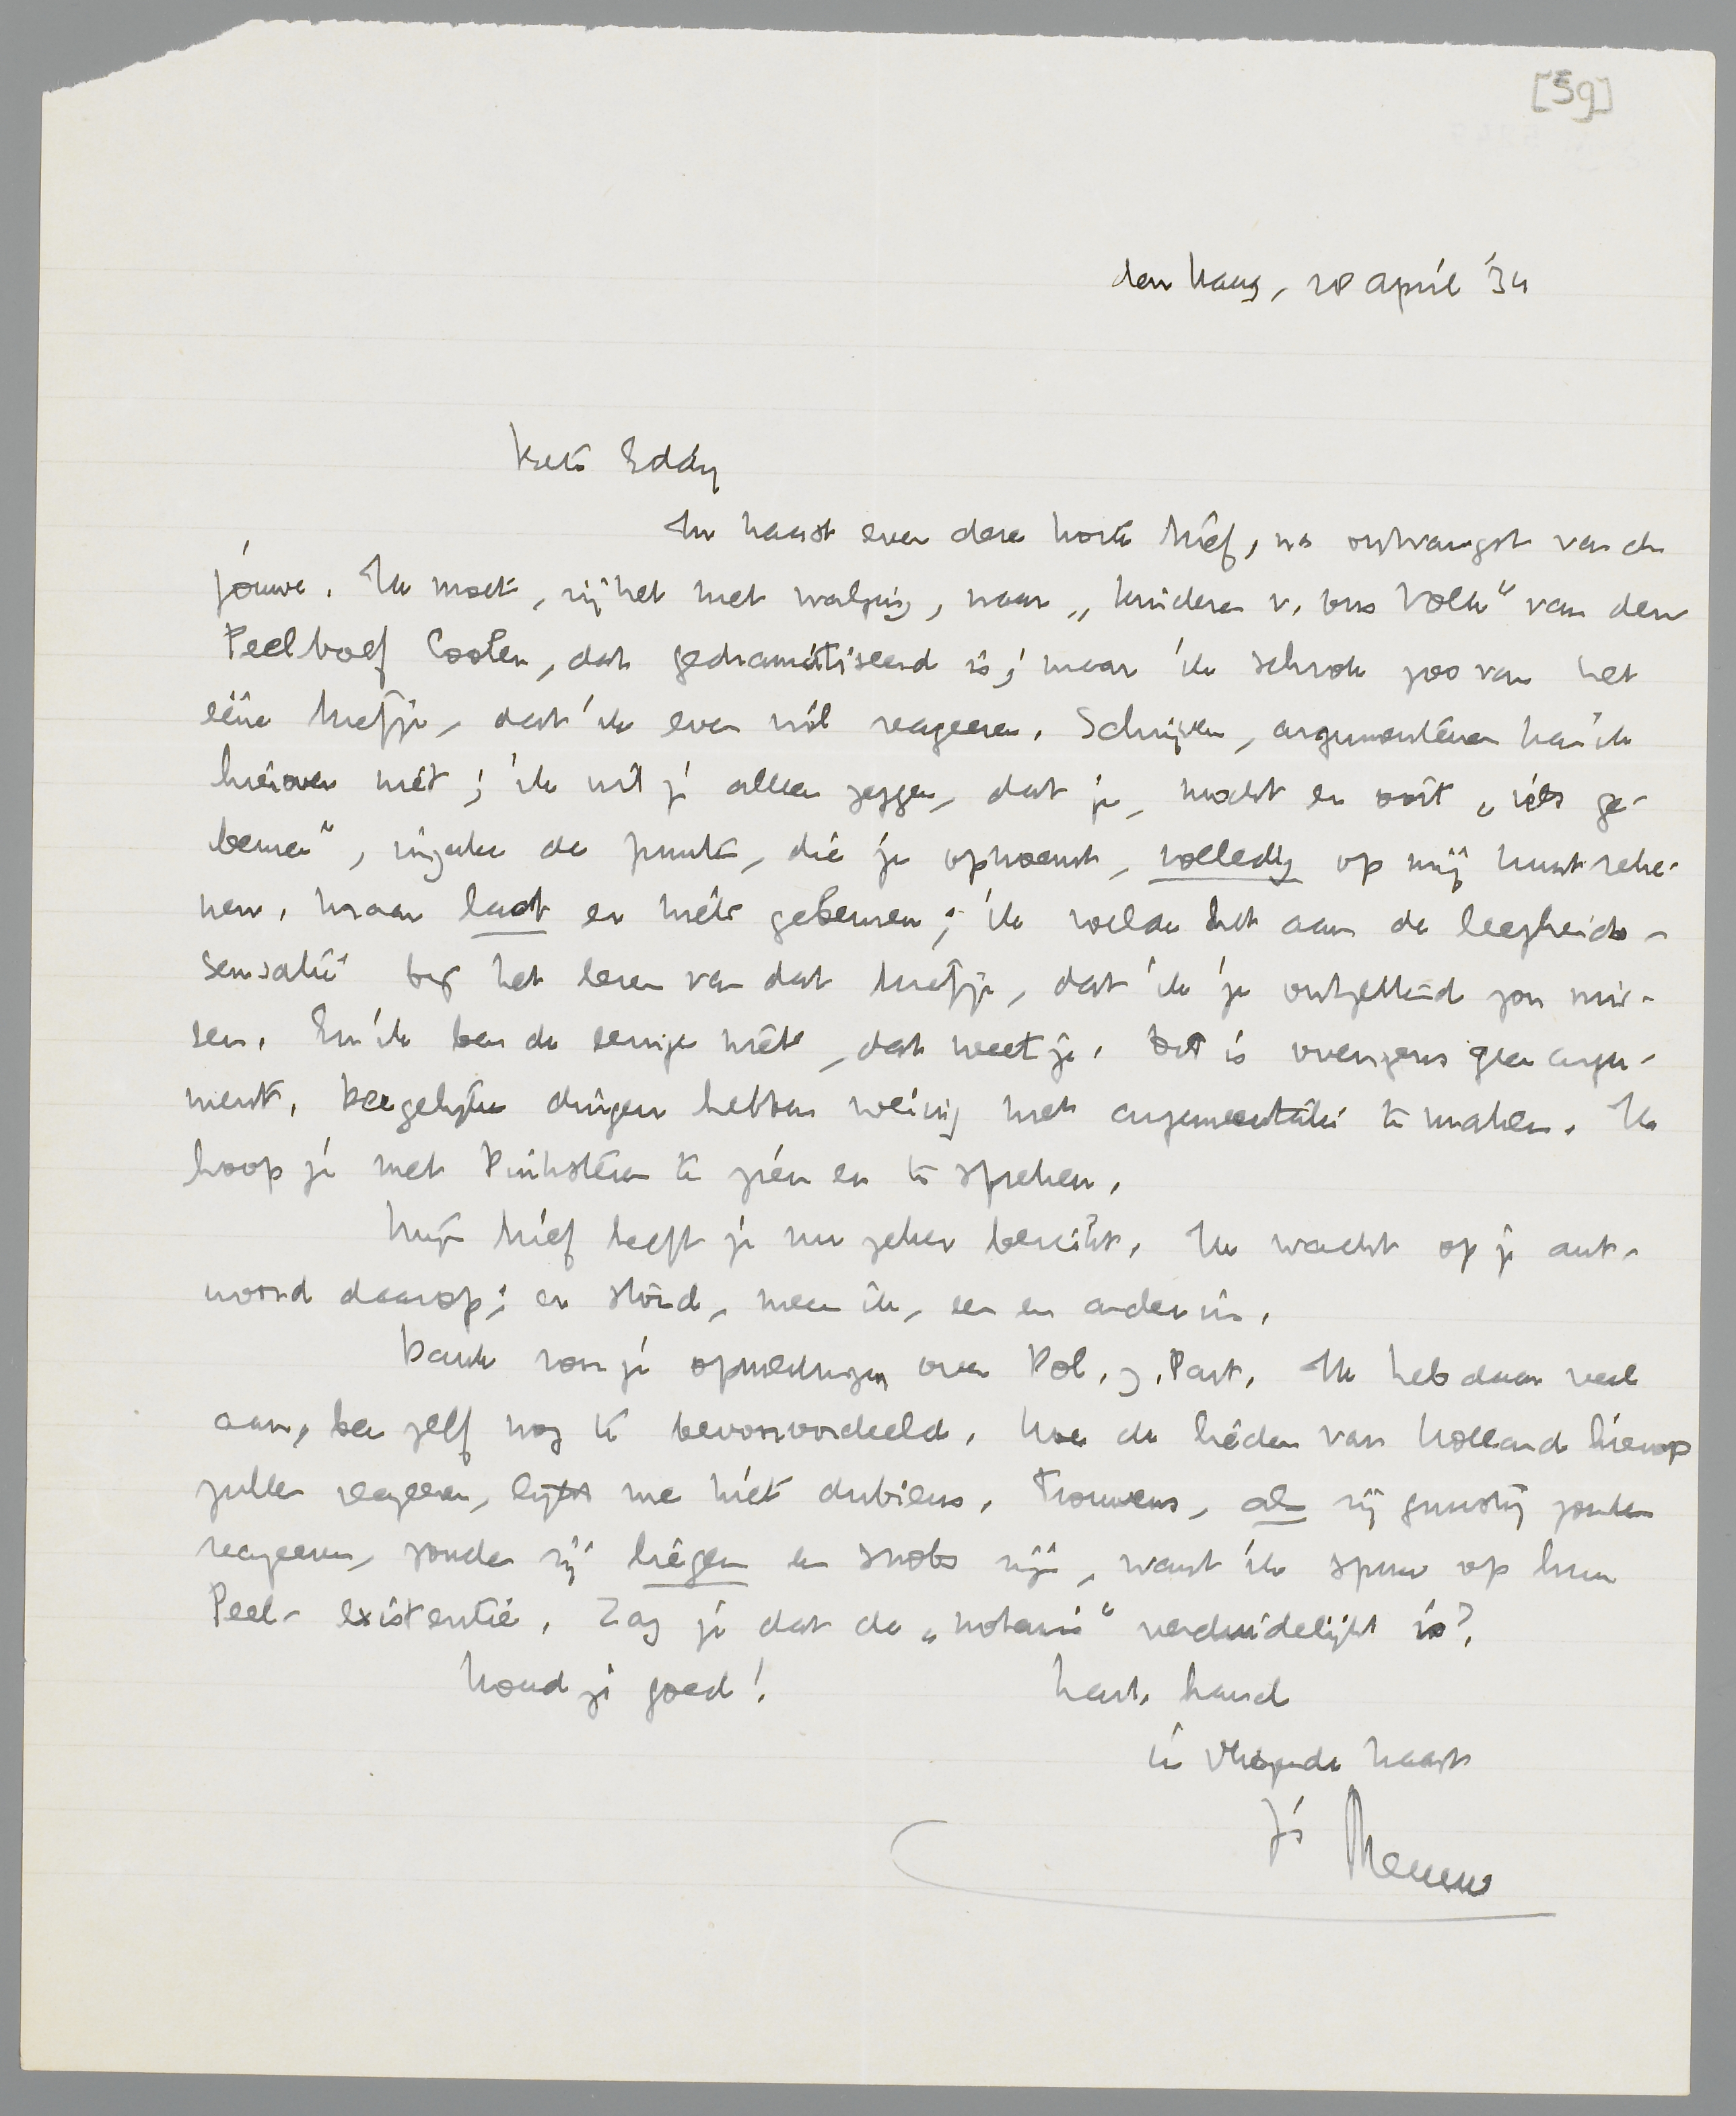 [59]
den Haag, 28 april '34
Beste Eddy
In haast even deze korte brief, na ontvangst van de
jouwe. Ik moet, zij het met walging, naar „kinderen v. ons Volk" van den
Peelboef Coolen, dat gedramatiseerd is; maar ik schrok zoo van het
eéne briefje, dat ik even wil reageeren. Schrijven, argumenteeren kan ik
hierover niet; ik wil je alleen zeggen, dat je, mocht er ooit „iets ge-
beuren", inzake de punten, die je opnoemt, volledig op mij kunt reke-
nen. Maar laat er niets gebeuren; ik voelde het aan de leegheids-
sensatie bij het lezen van dat briefje, dat ik je ontzettend zou mis-
sen. En ik ben de eenige niet, dat weet je. Dit is overigens geen argu-
ment. Dergelijke dingen hebben weinig met argumentatie te maken. Ik
hoop je met Pinksteren te zien en te spreken.
Mijn brief heeft je nu zeker bereikt. Ik wacht op je ant-
woord daarop; er stond, meen ik, een en ander in.
Dank voor je opmerkingen over Pol. z. Part. Ik heb daar veel
aan, ben zelf nog te bevooroordeeld. Hoe de lieden van Holland hierop
zullen reageeren, lijkt me niet dubieus. Trouwens, als zij gunstig zouden
reageeren, zouden zij liegen en snobs zijn, want ik spuw op hun
Peel-existentie. Zag je dat de „notaris" verduidelijkt is?
Houd je goed! hart. hand
in vliegende haast
Je Menno